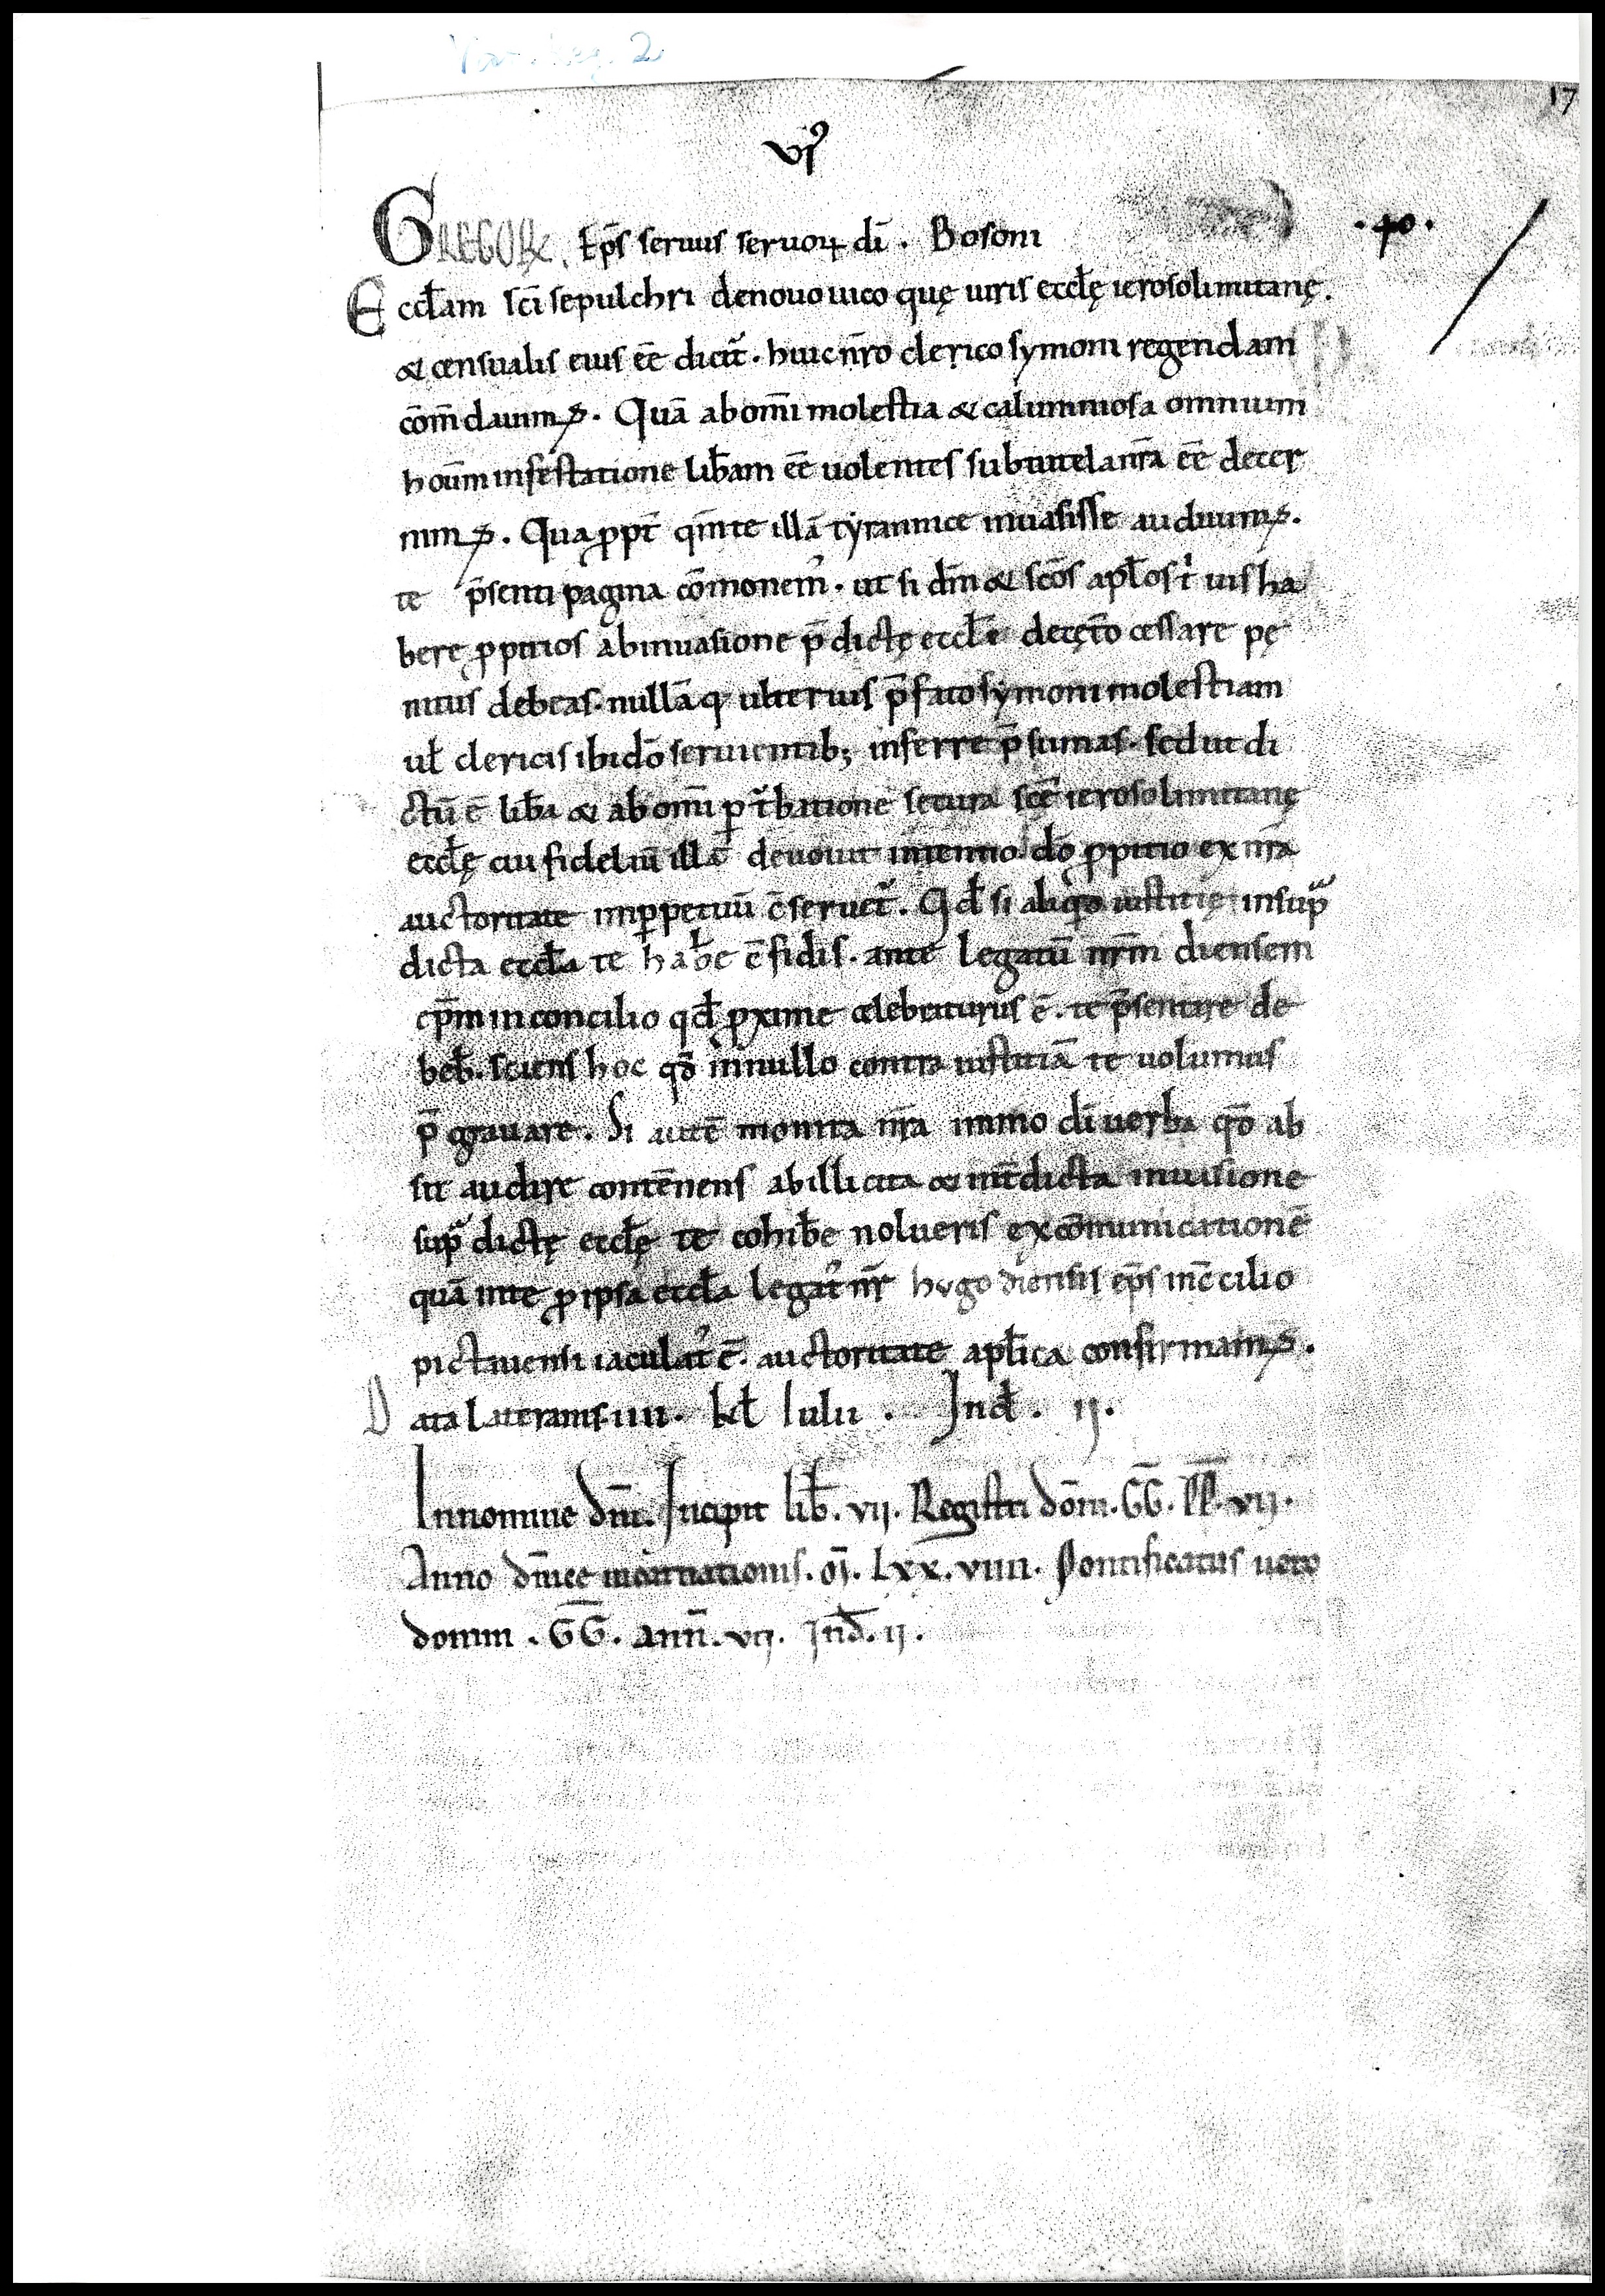 17
vi9
GREGORI9. Ep̄s seruus seruoꝝ dī. Bosoni
.40.
Eccl̄am sc̄i sepulchri denouo uico quę iuris eccłę ierosolimitanę.
& censualis eius eē dicit᷑. huic nr̄o clerico symoni regendam
cōm̄dauim9. Quā abom̄i molestia & calumniosa omnium
hoūm infestatione lib̄am eē uolentes sub tutela nr̄a eē decer
nim9. Quaꝓpt̄ qm̄ te illā tyrannice inuasisse audiuim9.
te p̄senti pagina cōmonem9. ut si dm̄ & sc̄os apl̄os t̉ uis ha
bere ꝓpitios abinuasione p̄dictę eccłę decęt̄o cessare pę
nitus debeas. nullāq ulterius p̄fato symoni molestiam
ul̄ clericis ibidē seruientib; inferre p̄sumas. sed ut di
ctū ē lib̄a & ab om̄i ꝑt᷑batione secura sc̄ę ierosolimitanę
eccłę cui fideliū illā deuouit intentio. dō ꝓpitio ex nr̄a
auctoritate inꝑpetuū c̄seruet᷑. Qd̄ si aliqͥd iustitię insupᷓ
dicta eccła te hab̄e c̄fidis. ante legatū nrm̄ diensem
ep̄m in concilio qd̄ ꝓxime celebraturus ē. te p̄sentare de
beb̄. sciens hoc qd̄ innullo contra iustitiā te uolumus
p̄grauare. Si autē monita nr̄a immo dī uerba qd̄ ab
sit audire contēnens abillicita & int̄dicta inuasione
supᷓdictę eccłę te cohib̄e nolueris excōmunicationē
quā inte ꝓ ipsa eccła legat9 nr̄ hugo diensis ep̄s in c̄cilio
pictauensi iaculat9 ē. auctoritate apl̄ica confirmam9.
Data Lateranis iiii. kł Iulii. Ind̄. ii.
Innomine dn̄i. Incipit lib̄. vii. Registri dōm. GG. PP. vii.
Anno dn̄icę incarnationis. ōj. Lxx. viiii. Pontificatus uero
domni. GG. ann̄. vii. Ind̄. ii.